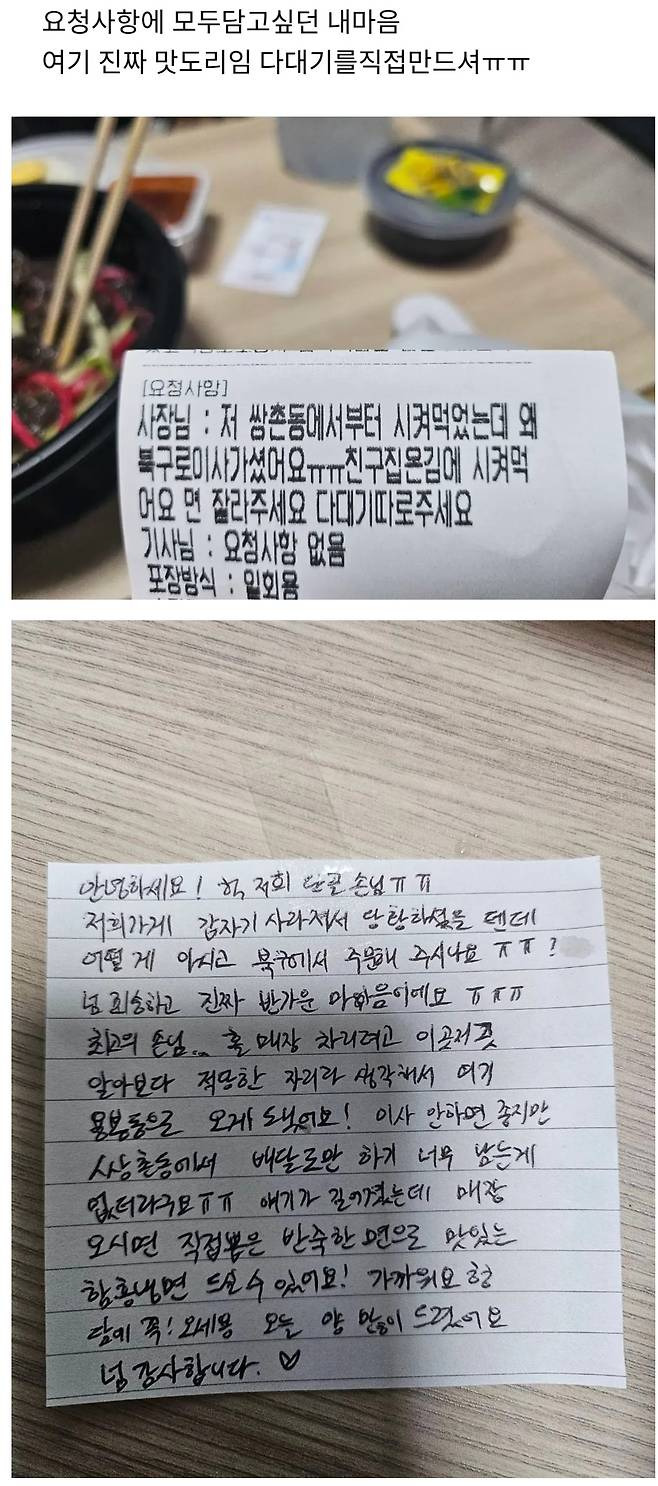 요청사항에 모두담고싶던 내마음
여기 진짜 맛도리임 다대기를직접만드셔ㅠㅠ
[요청사항]
사장님 : 저 쌍촌동에서부터 시켜먹었는데 왜
북구로이사가셨어요ㅠㅠ친구집온김에 시켜먹
어요 면 잘라주세요 다대기따로주세요
기사님 : 요청사항 없음
포장방식 : 일회용
안녕하세요! 헉 저희 단골 손님ㅠㅠ
저희가게 갑자기 사라져서 당황하셨을 텐데
어떻게 아시고 북구에서 주문해 주시나요 ㅠㅠ?
넘 죄송하고 진짜 반가운 마음이에요 ㅠㅠㅠ
최고의 손님.. 홀 매장 차리려고 이곳저곳
알아보다 적당한 자리라 생각해서 여기
용봉동으로 오게 됐어요! 이사 안하면 좋지만
쌍촌동에서 배달로만 하기 너무 남는게
없더라구요ㅠㅠ 얘기가 길어졌는데 매장
오시면 직접뽑은 반죽한 면으로 맛있는
함흥냉면 드실 수 있어요! 가까워요 헝
담에 꼭! 오세용 오늘 양 많이 드렸어요
넘 감사합니다. ♡